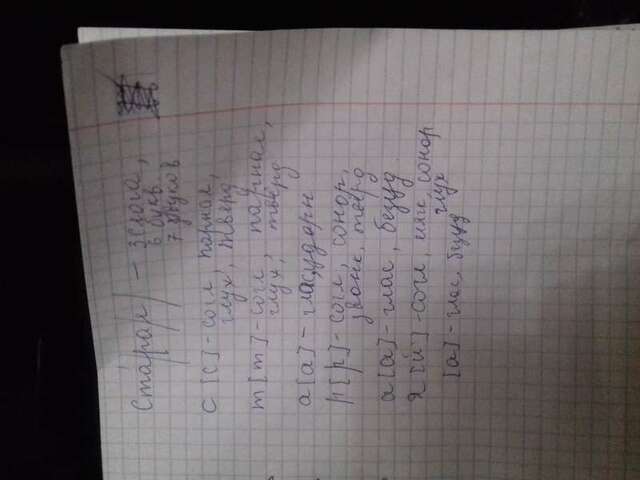 Старая - 3 слога,
6 букв
7 звуков
с [с] - согл парная,
глух, тверд
т [т] - согл, парная,
глух, твёрд
а [а] - глас, ударн
р [р] - согл, сонор,
звонк, твёрд
а [а] - глас, безуд
я [й'] - согл, мяг, сонор
глух
[а] - глас, безуд